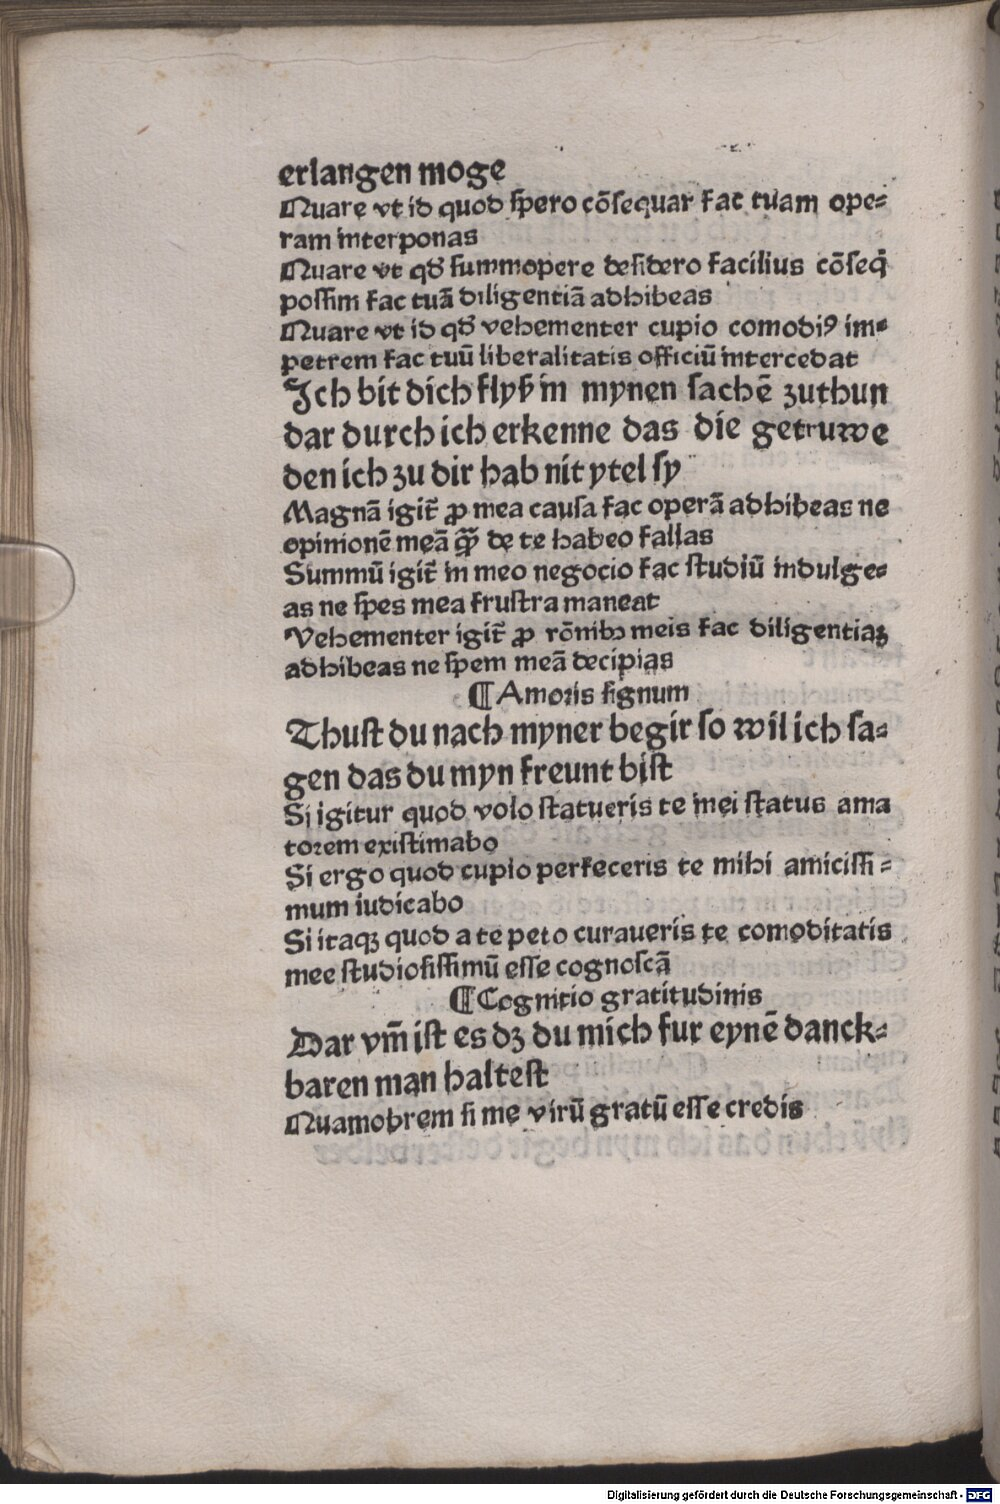 erlangen moge
Quare vt id quod spero cōsequar fac tuam ope-
ram interponas
Quare vt qđ summopere desidero facilius cōseq̄
possim fac tuā diligentiā adhibeas
Quare vt id qđ vehementer cupio comodiꝰ im-
petrem fac tuū liberalitatis officiū intercedat
Ich bit dich flyß in mynen sachē zuthun
dar durch ich erkenne das die getruwe
den ich zu dir hab nit ytel sy
Magnā igit̄ ꝓ mea causa fac operā adhibeas ne
opinionē meā qͣ̄ de te habeo fallas
Summū igit̄ in meo negocio fac studiū indulge-
as ne spes mea frustra maneat
Vehementer igit̄ ꝓ rōnibꝫ meis fac diligentiaꝫ
adhibeas ne spem meā decipias
¶ Amoris signum
Thust du nach myner begir so wil ich sa-
gen das du myn freunt bist
Si igitur quod volo statueris te mei status ama
torem existimabo
Si ergo quod cupio perfeceris te mihi amicissi-
mum iudicabo
Si itaqꝫ quod a te peto curaueris te comoditatis
mee studiosissimū esse cognoscā
¶ Cognitio gratitudinis
Dar vm̄ ist es dꝫ du mich fur eynē danck-
baren man haltest
Quamobrem si me virū gratū esse credis
Digitalisierung gefördert durch die Deutsche Forschungsgemeinschaft - DFG